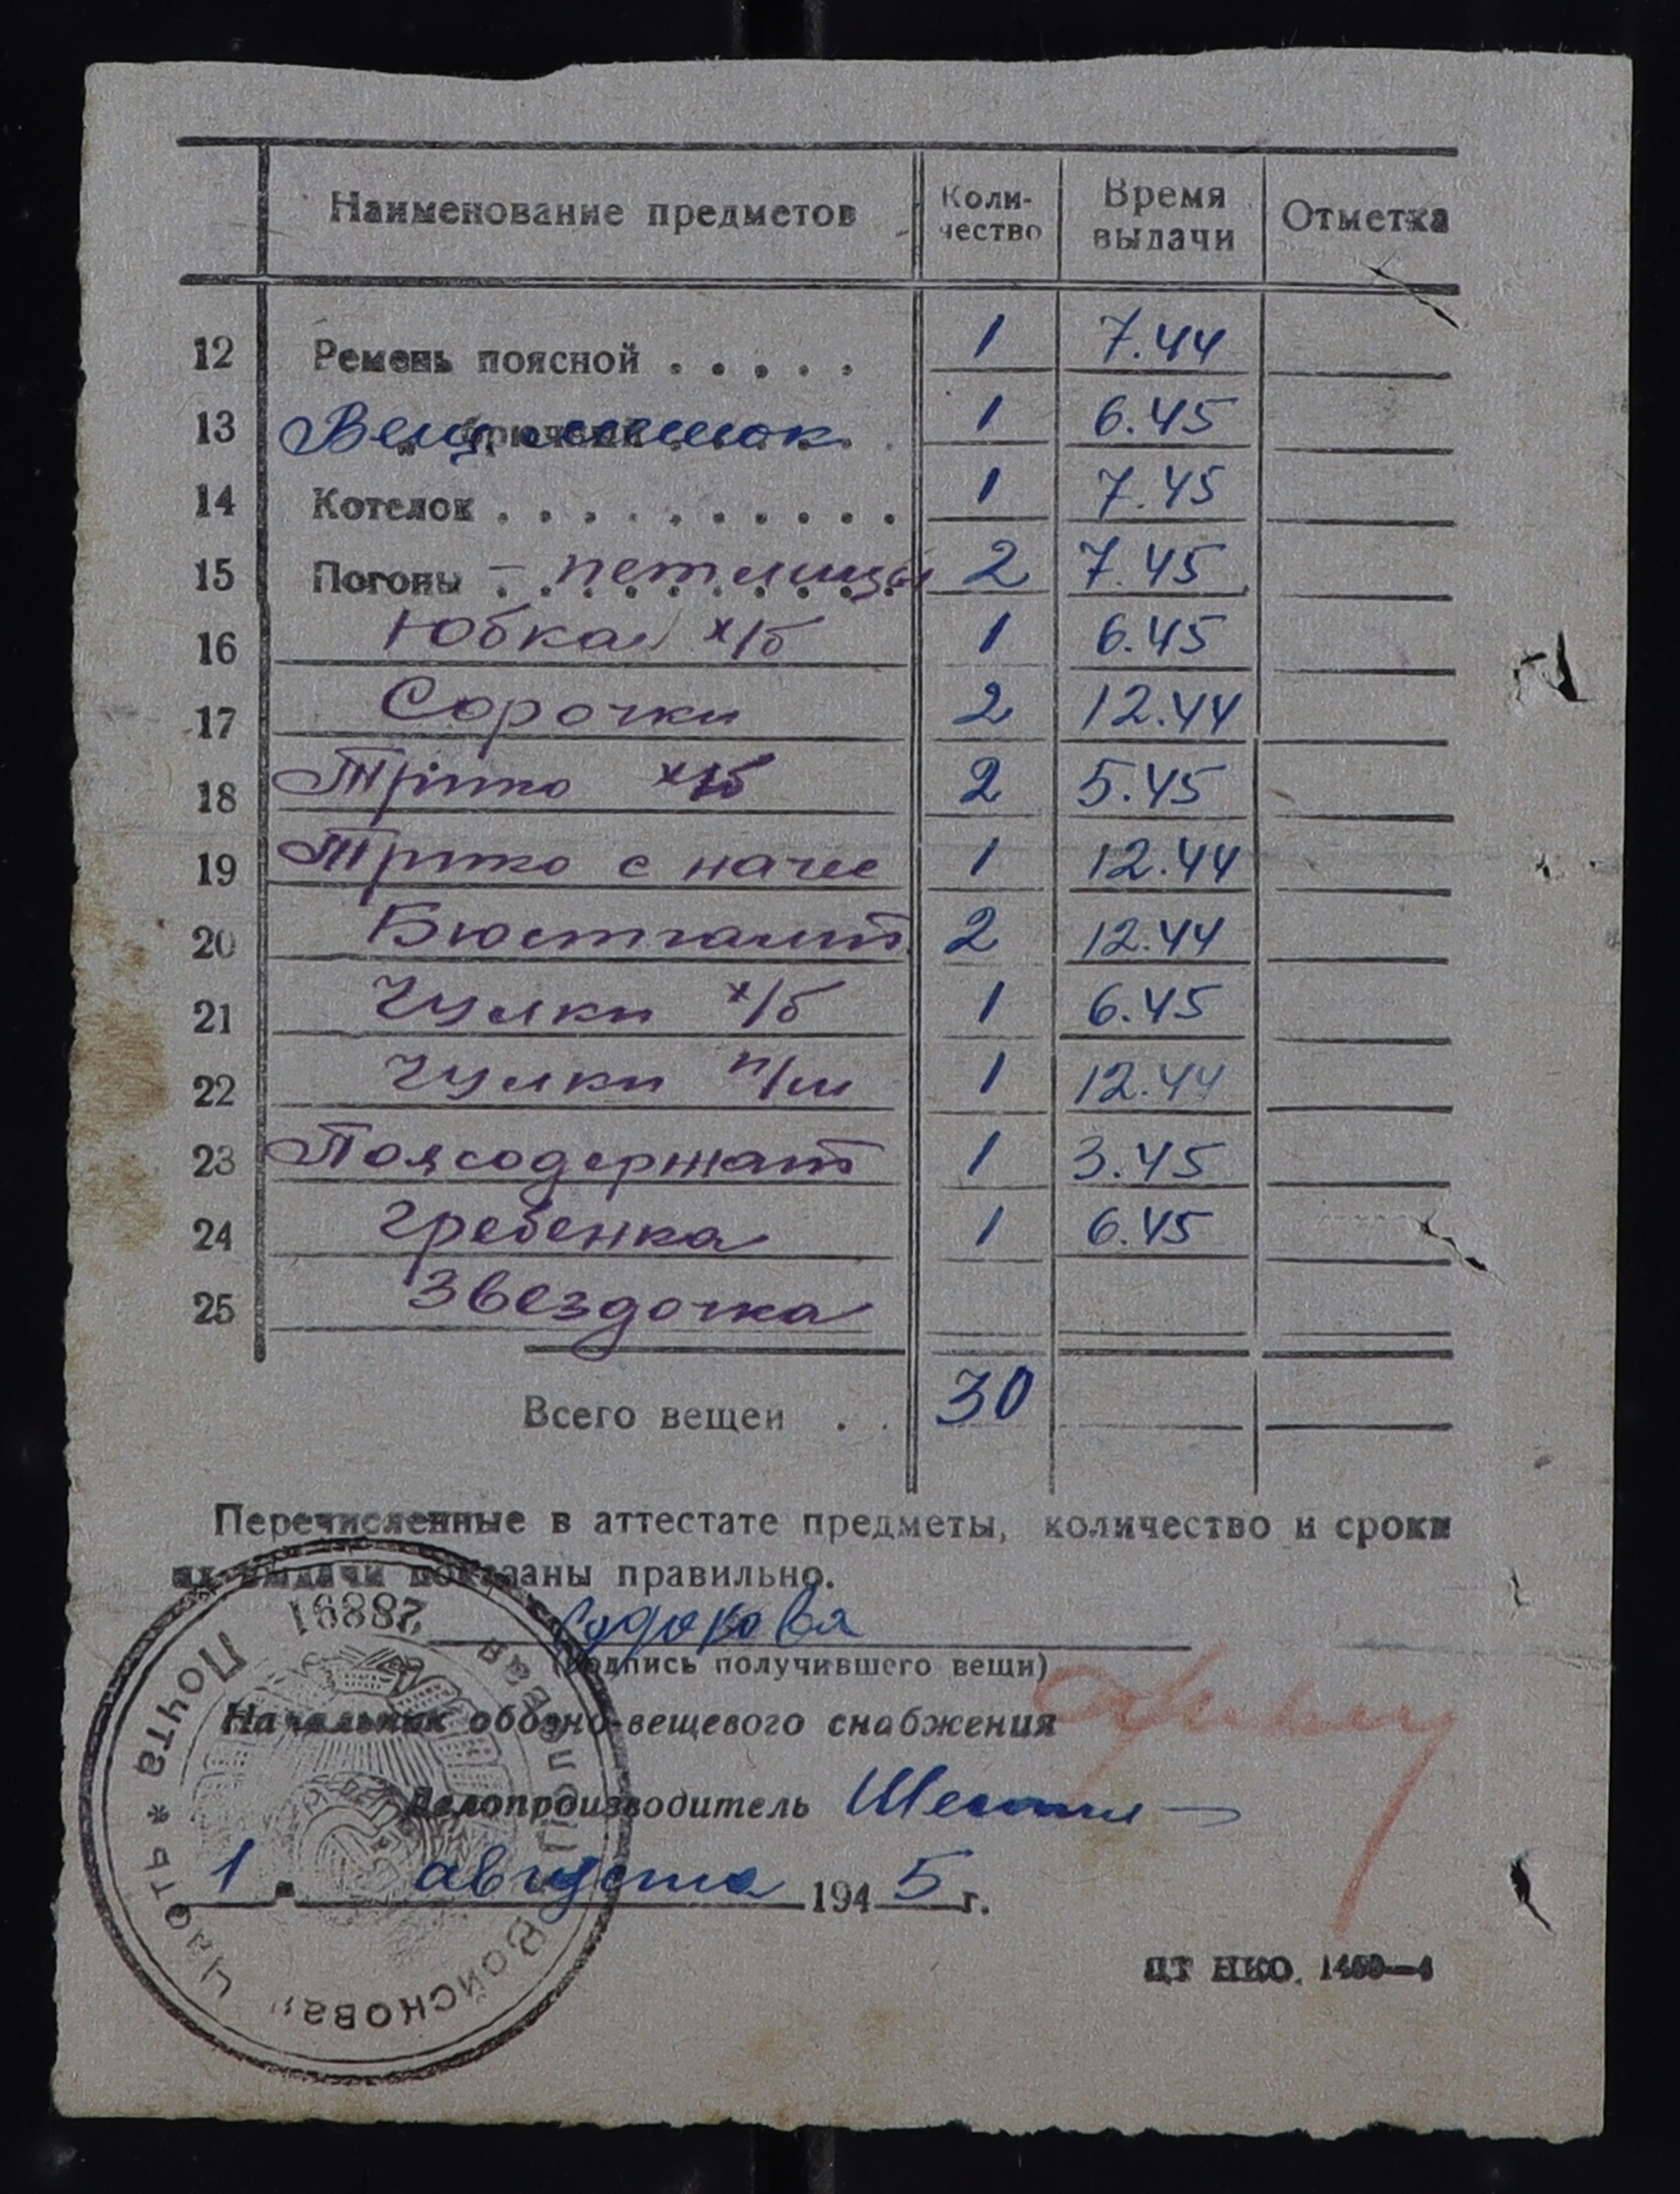 Наименование предметов Коли-чество Время выдачи Отметка
12 Ремень поясной . . . . . 1 7.44
13 Вещ мешок 1 6.45
14 Котелок . . . . . . . . . . 1 7.45
15 Погоны – петлицы 2 7.45
16 Юбка х/б 1 6.45
17 Сорочки 2 12.44
18 Трико х/б 2 5.45
19 Трико с наче 1 12.44
20 Бюстгальт 2 12.44
21 Чулки х/б 1 6.45
22 Чулки п/ш 1 12.44
23 Поясодержат 1 3.45
24 Гребенка 1 6.45
25 Звездочка
Всего вещей . . 30
Перечисленные в аттестате предметы, количество и сроки
их выдачи показаны правильно.
(подпись получившего вещи)
Начальник обозно-вещевого снабжения
Делопроизводитель
1 августа 1945 г.
28891
Полевая Почта * Часть "Войсковая
ЦТ НКО.